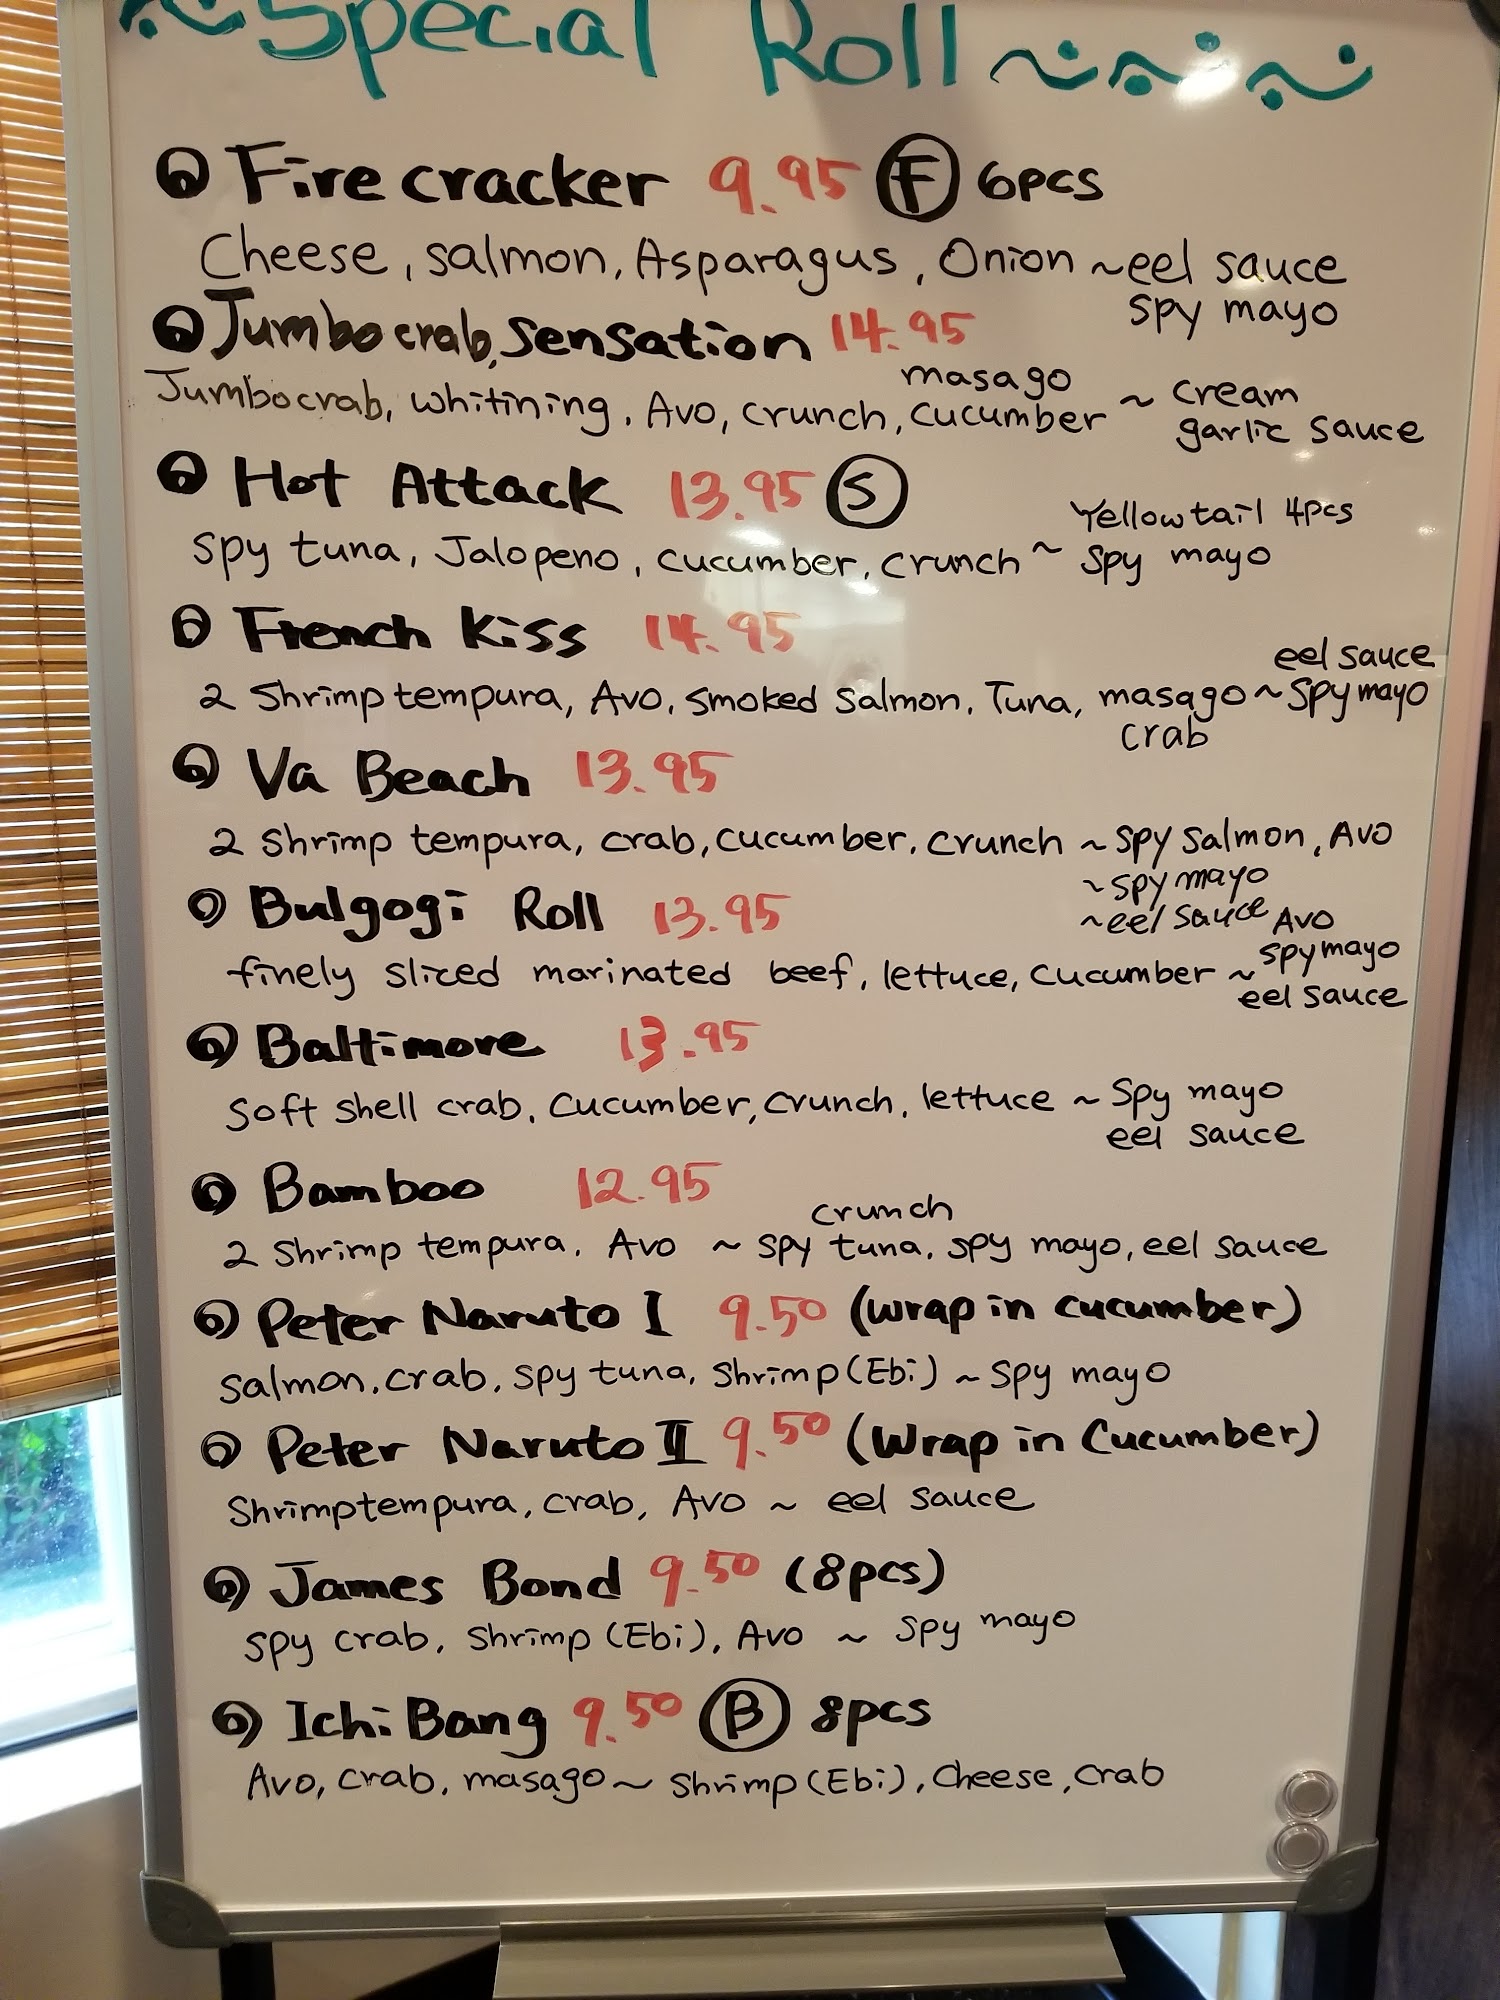 Special Roll
Fire cracker 9.95 F 6pcs
Cheese, salmon, Asparagus, Onion ~eel sauce
spy mayo
Jumbo crab, sensation 14.95
masago
Jumbocrab, whitining, Avo, crunch, cucumber ~ cream
garlic sauce
Hot Attack 13.95 S
Yellowtail 4pcs
spy tuna, Jalopeno, cucumber, crunch ~ spy mayo
French Kiss 14.95
eel sauce
2 Shrimp tempura, Avo, smoked salmon, Tuna, masago ~ spy mayo
crab
Va Beach 13.95
2 Shrimp tempura, crab, cucumber, crunch ~ spy salmon, Avo
~spy mayo
~eel sauce
Bulgogi Roll 13.95
Avo
spy mayo
finely sliced marinated beef, lettuce, cucumber ~
eel sauce
Baltimore 13.95
soft shell crab, cucumber, crunch, lettuce ~ spy mayo
eel sauce
Bamboo 12.95
crunch
2 Shrimp tempura, Avo ~ spy tuna, spy mayo, eel sauce
Peter Naruto I 9.50 (wrap in cucumber)
salmon, crab, spy tuna, Shrimp (Ebi) ~ spy mayo
Peter Naruto II 9.50 (Wrap in Cucumber)
Shrimp tempura, crab, Avo ~ eel sauce
James Bond 9.50 (8pcs)
spy crab, Shrimp (Ebi), Avo ~ spy mayo
Ichi Bang 9.50 B 8pcs
Avo, crab, masago ~ Shrimp (Ebi), Cheese, crab